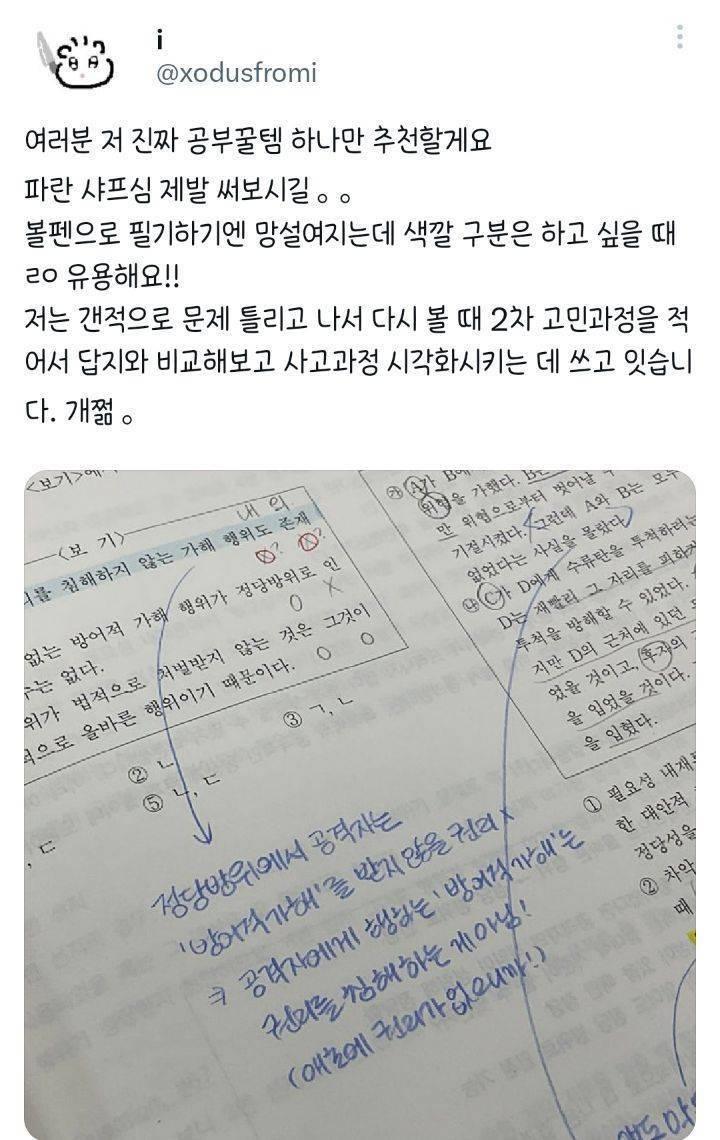 i
@xodusfromi
여러분 저 진짜 공부꿀템 하나만 추천할게요
파란 샤프심 제발 써보시길 。 。
볼펜으로 필기하기엔 망설여지는데 색깔 구분은 하고 싶을 때
ㄹㅇ 유용해요!!
저는 갠적으로 문제 틀리고 나서 다시 볼 때 2차 고민과정을 적
어서 답지와 비교해보고 사고과정 시각화시키는 데 쓰고 잇습니
다. 개쩖 。
<보기>에
<보 기>
내 의
를 침해하지 않는 가해 행위도 존재
없는 방어적 가해 행위가 정당방위로 인
는 없다.
위가 법적으로 처벌받지 않는 것은 그것이
적으로 올바른 행위이기 때문이다.
② ㄴ
③ ㄱ, ㄴ
⑤ ㄴ, ㄷ
, ㄷ
정당방위에서 공격자는
'방어적 가해'를 받지 않을 권리 x
'방어적 가해'는
공격자에게 행하는
권리를 침해하는 게 아님!
(애초에 권리가 없으니까!)
㉮ A가 B에
위협을 가했다. B는
만 위협으로부터 벗어날 수
기절시켰다. 그런데 A와 B는 모두
없었다는 사실을 몰랐다.
㉯ C가 D에게 수류탄을 투척하려는
D는 재빨리 그 자리를 피하
투척을 방해할 수 있었다.
지만 D의 근처에 있던
었을 것이고, 후자의
을 입었을 것이다.
을 입혔다.
① 필요성 내재
한 대안적
정당성을
② 차악
때